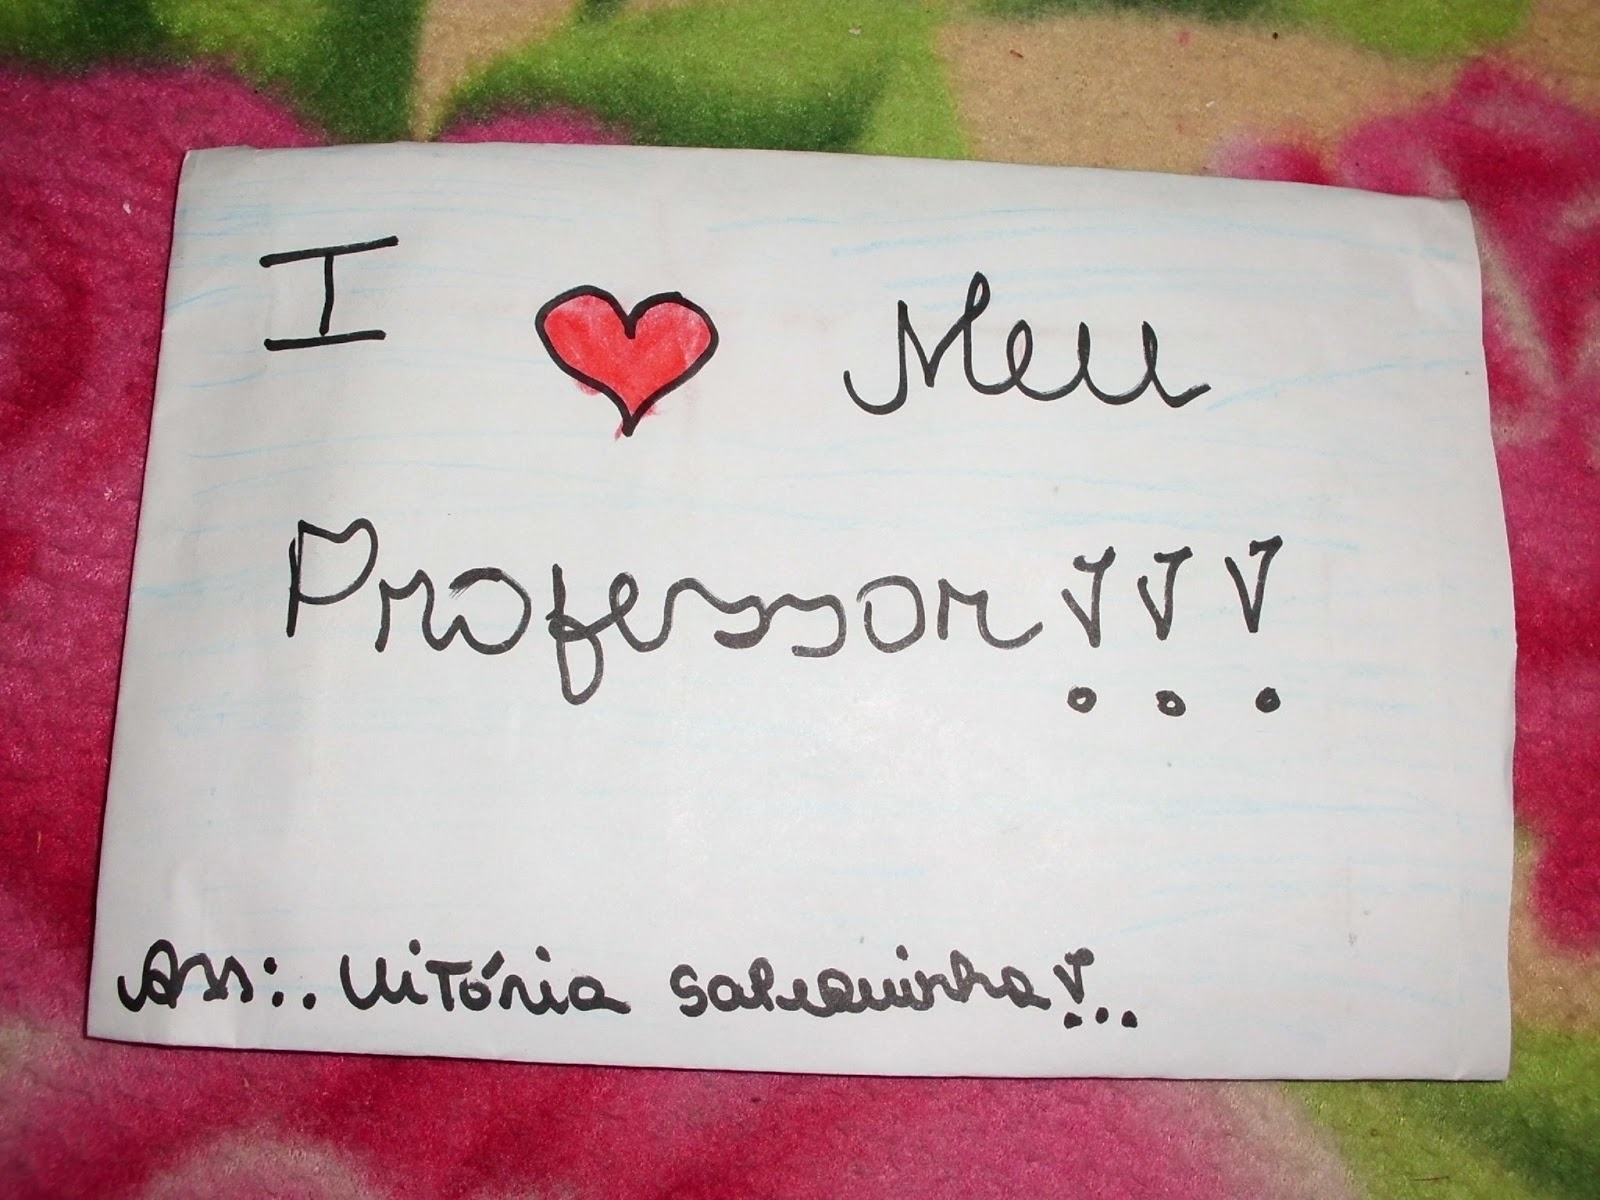 I ❤ Meu
Professor!!!
Ass:. Vitória Salequinha!...